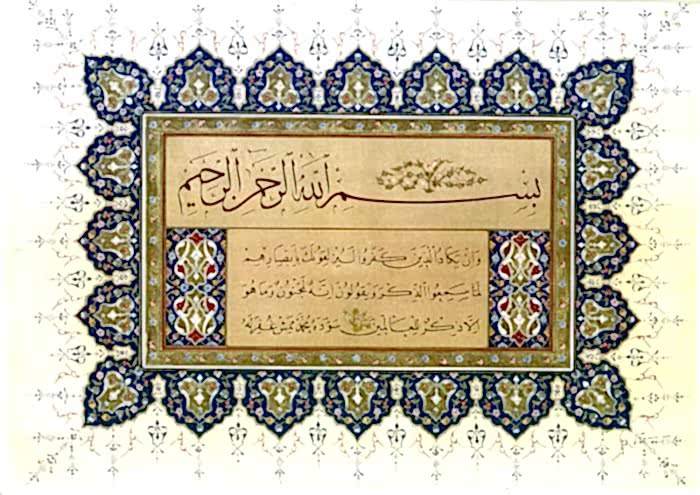 بسم الله الرحمن الرحيم
وان يكاد الذين كفروا ليزلقونك بابصارهم
لما سمعوا الذكر ويقولون انه لمجنون وما هو
الا ذكر للعالمين سوده محمد غفر له